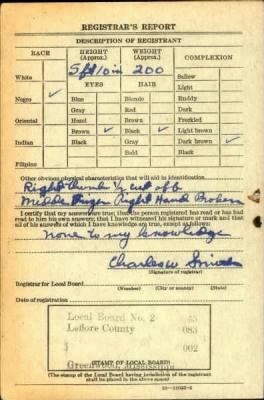 REGISTRAR'S REPORT
DESCRIPTION OF REGISTRANT
RACE HEIGHT (Approx.) WEIGHT (Approx.) COMPLEXION
5 ft 10 in 200
White Sallow
EYES HAIR Light
Negro ✓ Blue Blonde Ruddy
Gray Red Dark
Oriental Hazel Brown Freckled
Brown ✓ Black ✓ Light brown
Indian Black Gray Dark brown ✓
Bald Black
Filipino
Other obvious physical characteristics that will aid in identification
Right thumb ½ cut off
Middle Finger Right Hand Broken
I certify that my answers are true; that the person registered has read or has had
read to him his own answers; that I have witnessed his signature or mark and that
all of his answers of which I have knowledge are true, except as follows:
None to my knowledge
Charles W
(Signature of registrar)
Registrar for Local Board
(Number) (City or county) (State)
Date of registration
Local Board No. 2 45
Leflore County 083
002
Greenwood, Mississippi
(STAMP OF LOCAL BOARD)
(The stamp of the Local Board having jurisdiction of the registrant
shall be placed in the above space)